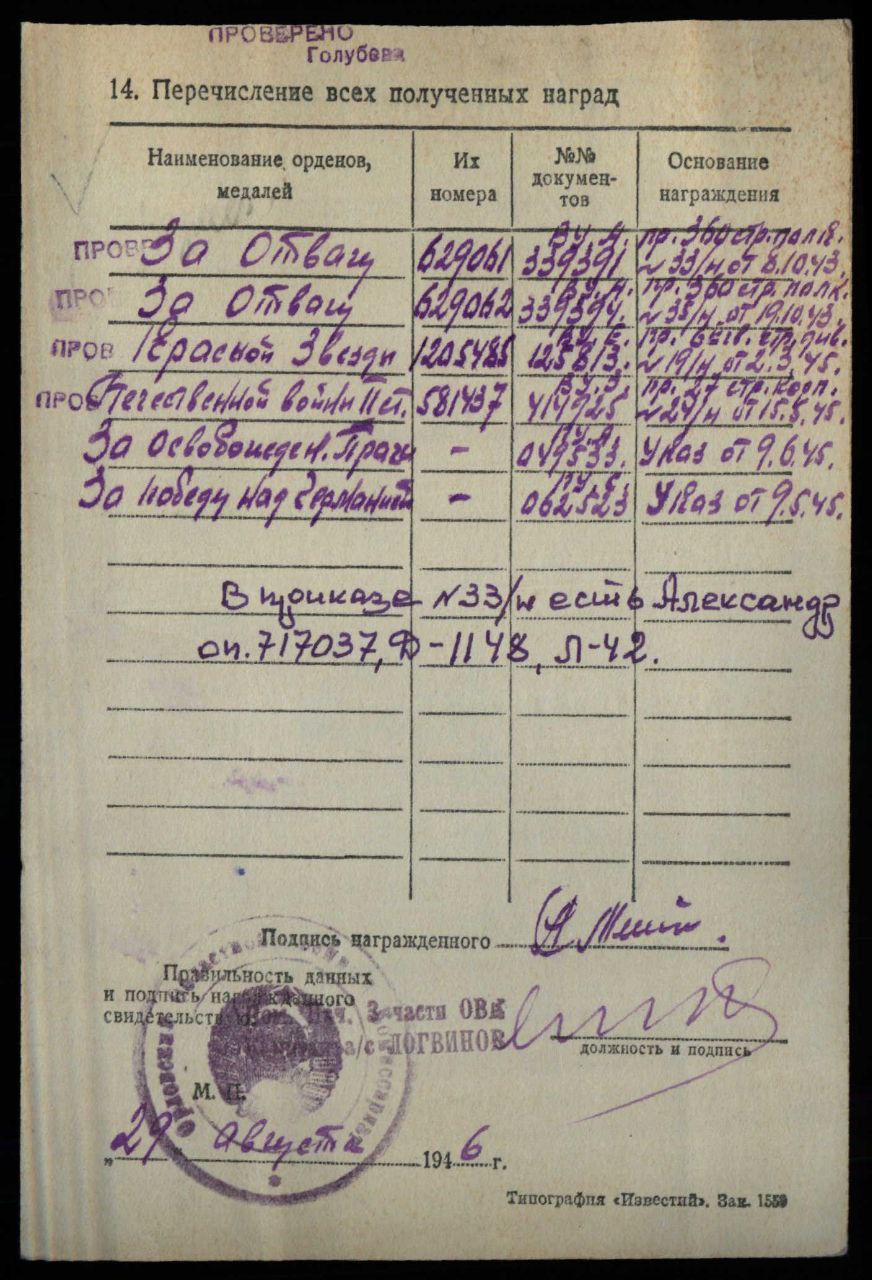 ПРОВЕРЕНО
Голубева
14. Перечисление всех полученных наград
Наименование орденов, медалей
Их номера
№№ документов
Основание награждения
ПРОВЕ За Отвагу 629061 вр. уд. 339391 пр. 360 стр. полк. №33/н от 8.10.43.
ПРО За Отвагу 629062 339394. пр. 360 стр. полк. №35/н от 19.10.43.
ПРОВ Красной Звезды 1205485 125813. №19/н от 2.3.45.
ПРОВ Отечественной войны II ст. 581437 414925 пр. 27 стр. корп. №24/н от 15.5.45.
За Освобожден. Праги - 049533. Указ от 9.6.45.
За победу над Германией - 062523 Указ от 9.5.45.
В приказе №33/н есть Александр
оп. 717037, Д-1148, Л-42.
Подпись награжденного
Правильность данных
и подпись награжденного
свидетельствую:
Нач. 3 части ОВК
а/с ЛОГВИНОВ
должность и подпись
М. П.
„29" августа 1946 г.
Типография «Известий». Зак. 1559